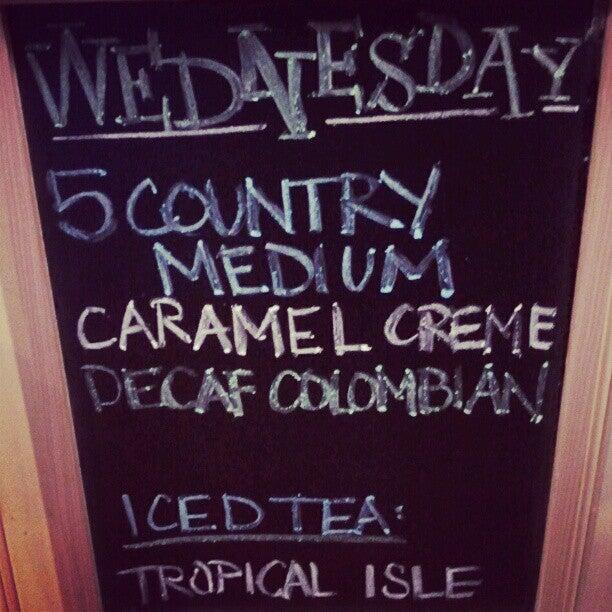 WEDNESDAY
5 COUNTRY
MEDIUM
CARAMEL CREME
DECAF COLOMBIAN
ICED TEA:
TROPICAL ISLE